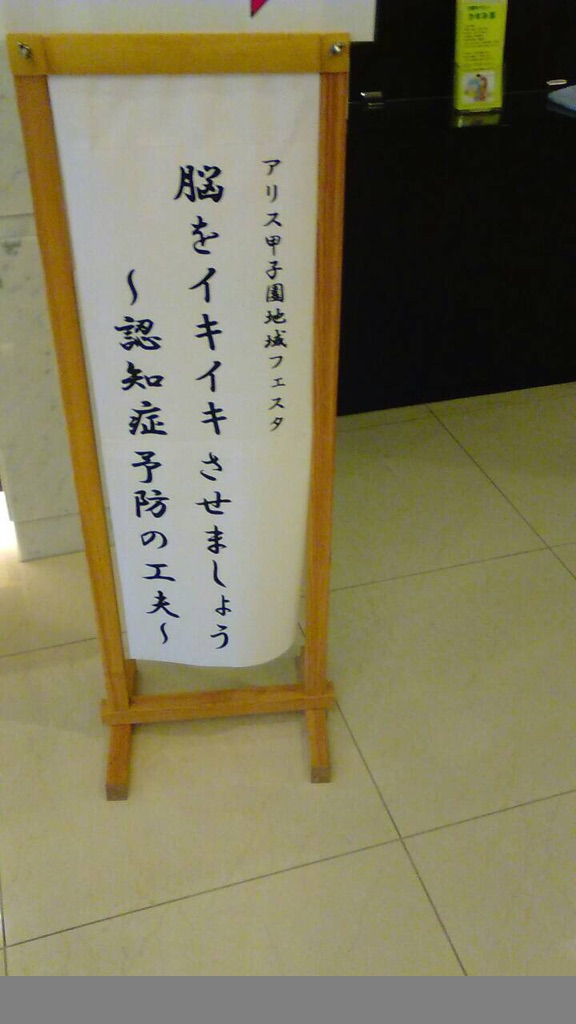 アリス甲子園地域フェスタ
脳をイキイキさせましょう
～認知症予防の工夫～